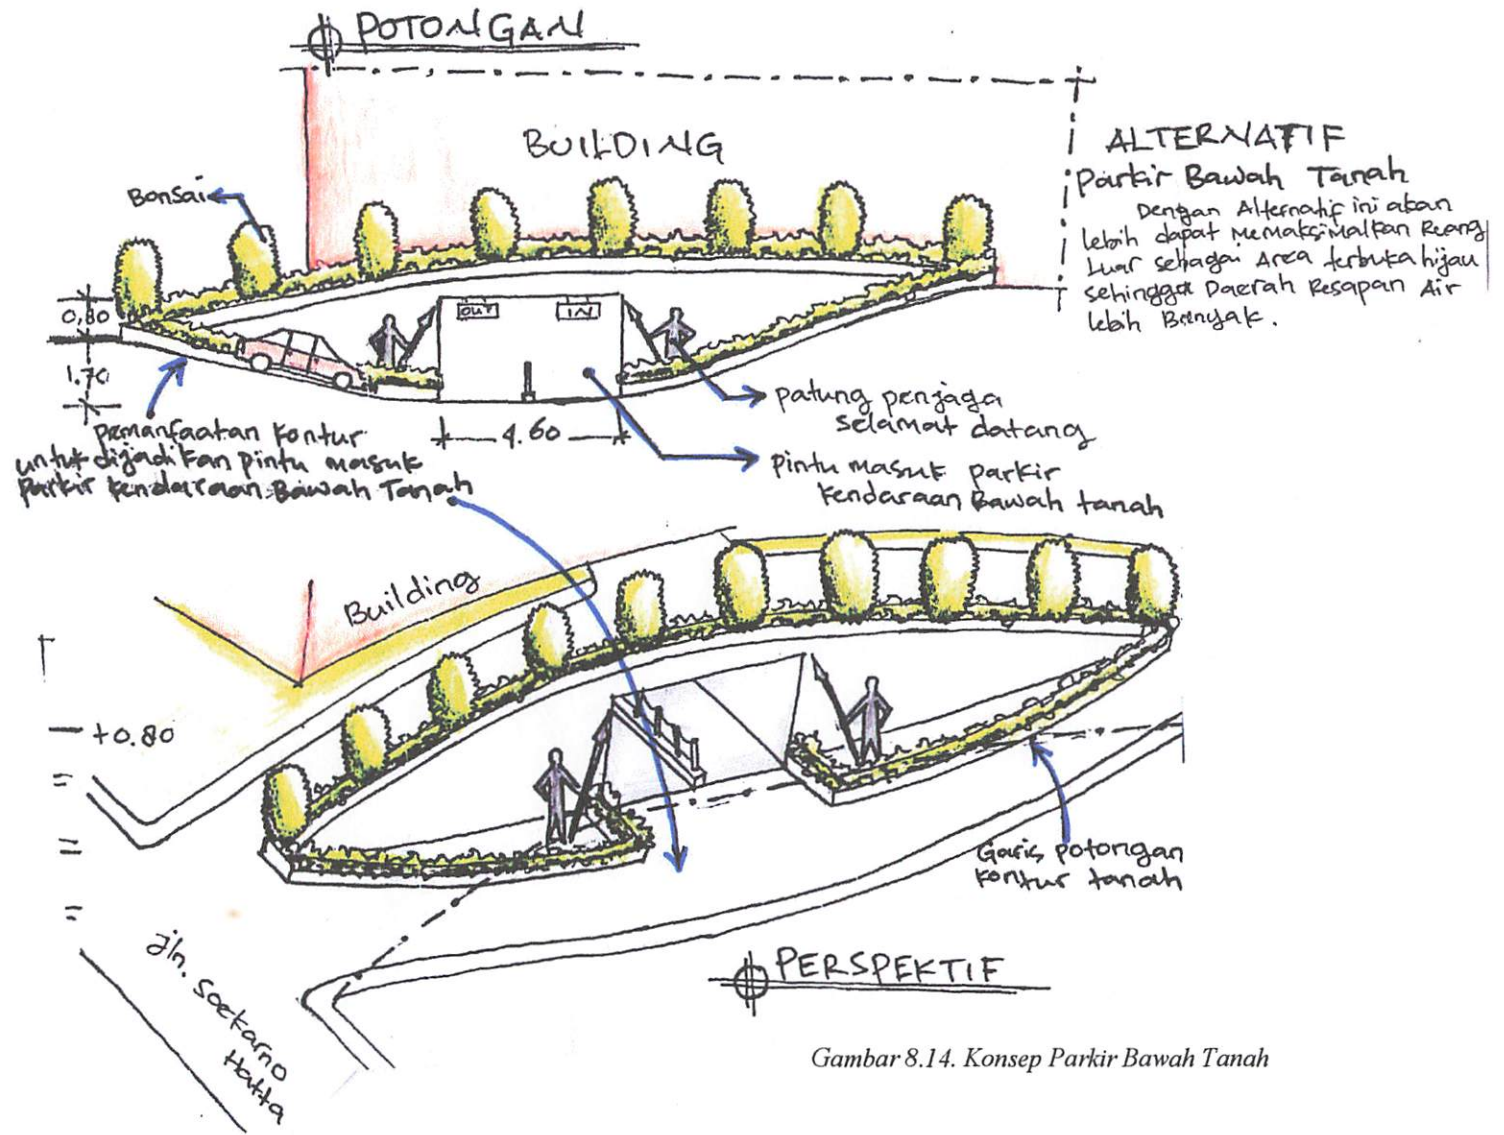 POTONGAN
BUILDING
Bonsai
OUT
IN
0,80
1.70
4.60
ALTERNATIF
Parkir Bawah Tanah
Dengan Alternatif ini akan
lebih dapat Memaksimalkan Ruang
Luar sebagai Area terbuka hijau
sehingga Daerah Resapan Air
lebih Banyak.
pemanfaatan kontur
untuk dijadikan pintu masuk
Parkir kendaraan Bawah Tanah
patung penjaga
selamat datang
pintu masuk parkir
kendaraan Bawah tanah
Building
+0.80
Garis potongan
kontur tanah
jln. Soekarno
Hatta
PERSPEKTIF
Gambar 8.14. Konsep Parkir Bawah Tanah